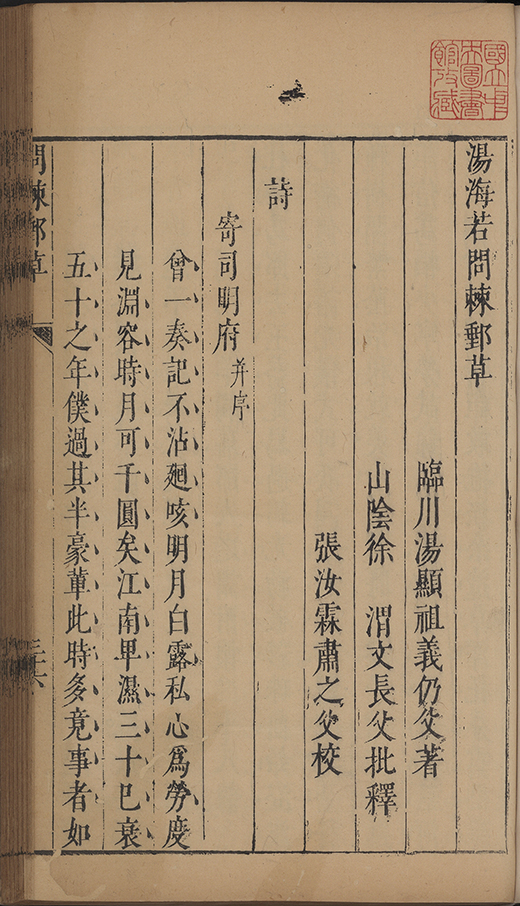 國立中
央圖書
館收藏
湯海若問棘郵草
臨川湯顯祖義仍父著
山陰徐　渭文長父批釋
張汝霖肅之父校
詩
寄司明府并序
曾一奏記不沾廻咳明月白露私心爲勞度
見淵容時月可千圓矣江南卑濕三十已衰
五十之年僕過其半豪輩此時多竟事者如
問棘郵草